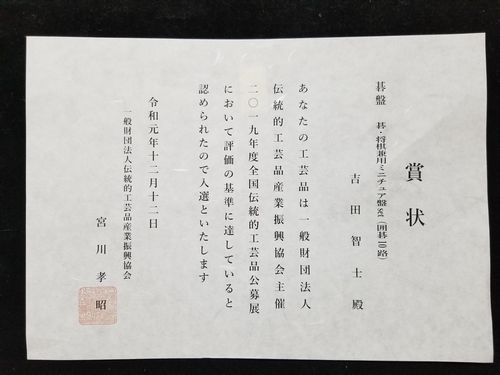 賞状
碁盤 碁・将棋兼用ミニチュア盤set(囲碁10路)
吉田智士殿
あなたの工芸品は一般財団法人
伝統的工芸品産業振興協会主催
二〇一九年度全国伝統的工芸品公募展
において評価の基準に達していると
認められたので入選といたします
令和元年十二月十二日
一般財団法人伝統的工芸品産業振興協会
宮川孝昭